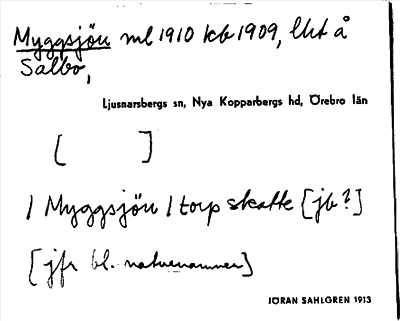 Myggsjön ml 1910 kb 1909, lht å
Salbo,
Ljusnarsbergs sn, Nya Kopparbergs hd, Örebro län
[ ]
/ Myggsjön / torp skatte [jb?]
[jfr bl. naturnamnen]
JÖRAN SAHLGREN 1913